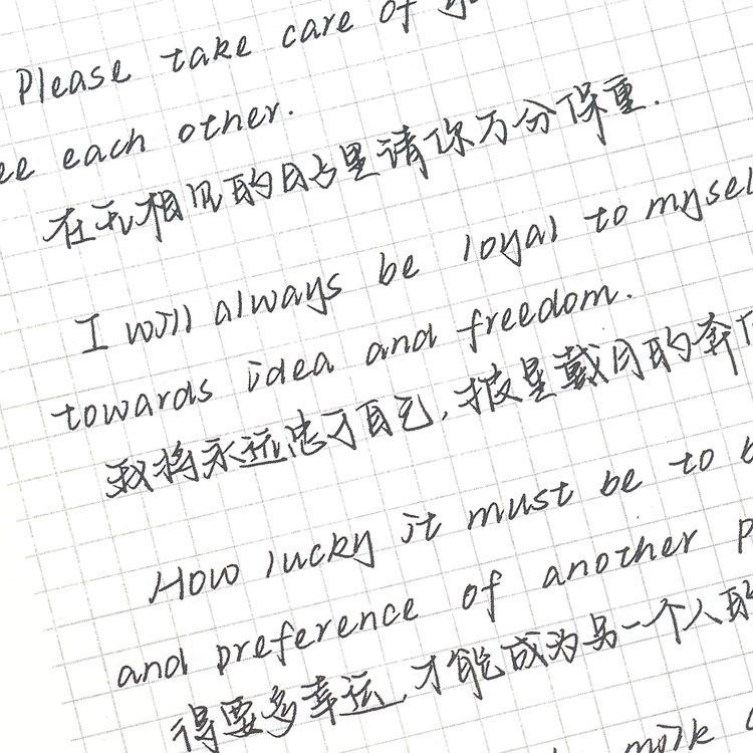 Please take care of
each other.
在无相见的日子里请你万分保重.
I will always be loyal to
towards idea and freedom.
我将永远忠于自己,披星戴月的奔
How lucky it must be to
and preference of another
得要多幸运,才能成为另一个人的